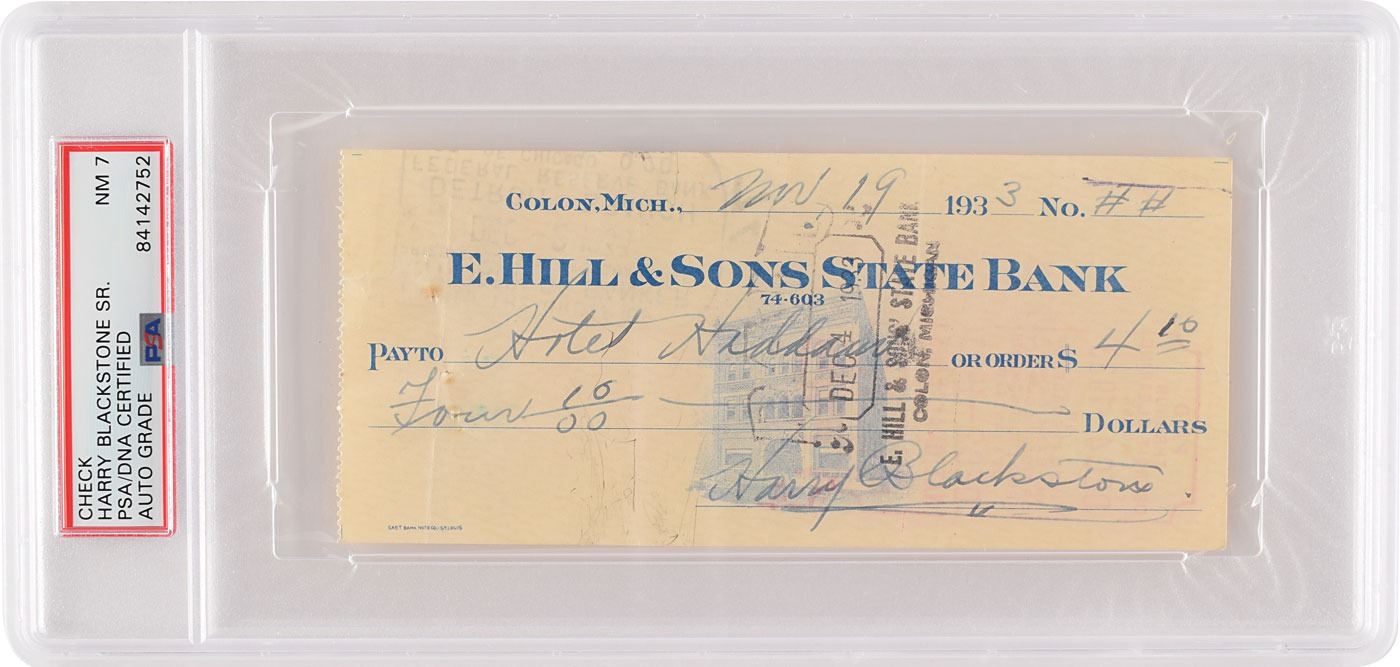 CHECK NM 7
HARRY BLACKSTONE SR.
PSA/DNA CERTIFIED
AUTO GRADE 84142752
PSA
COLON, MICH., Nov, 19 1933 No. ##
E. HILL & SONS STATE BANK
74-603
PAY TO Hotel OR ORDER $ 4 10
Four 10/00 DOLLARS
Harry Blackstone
DEC 4 1933
E. HILL & SONS' STATE BANK
COLON, MICHIGAN
FEDERAL RESERVE BANK
OF CHICAGO